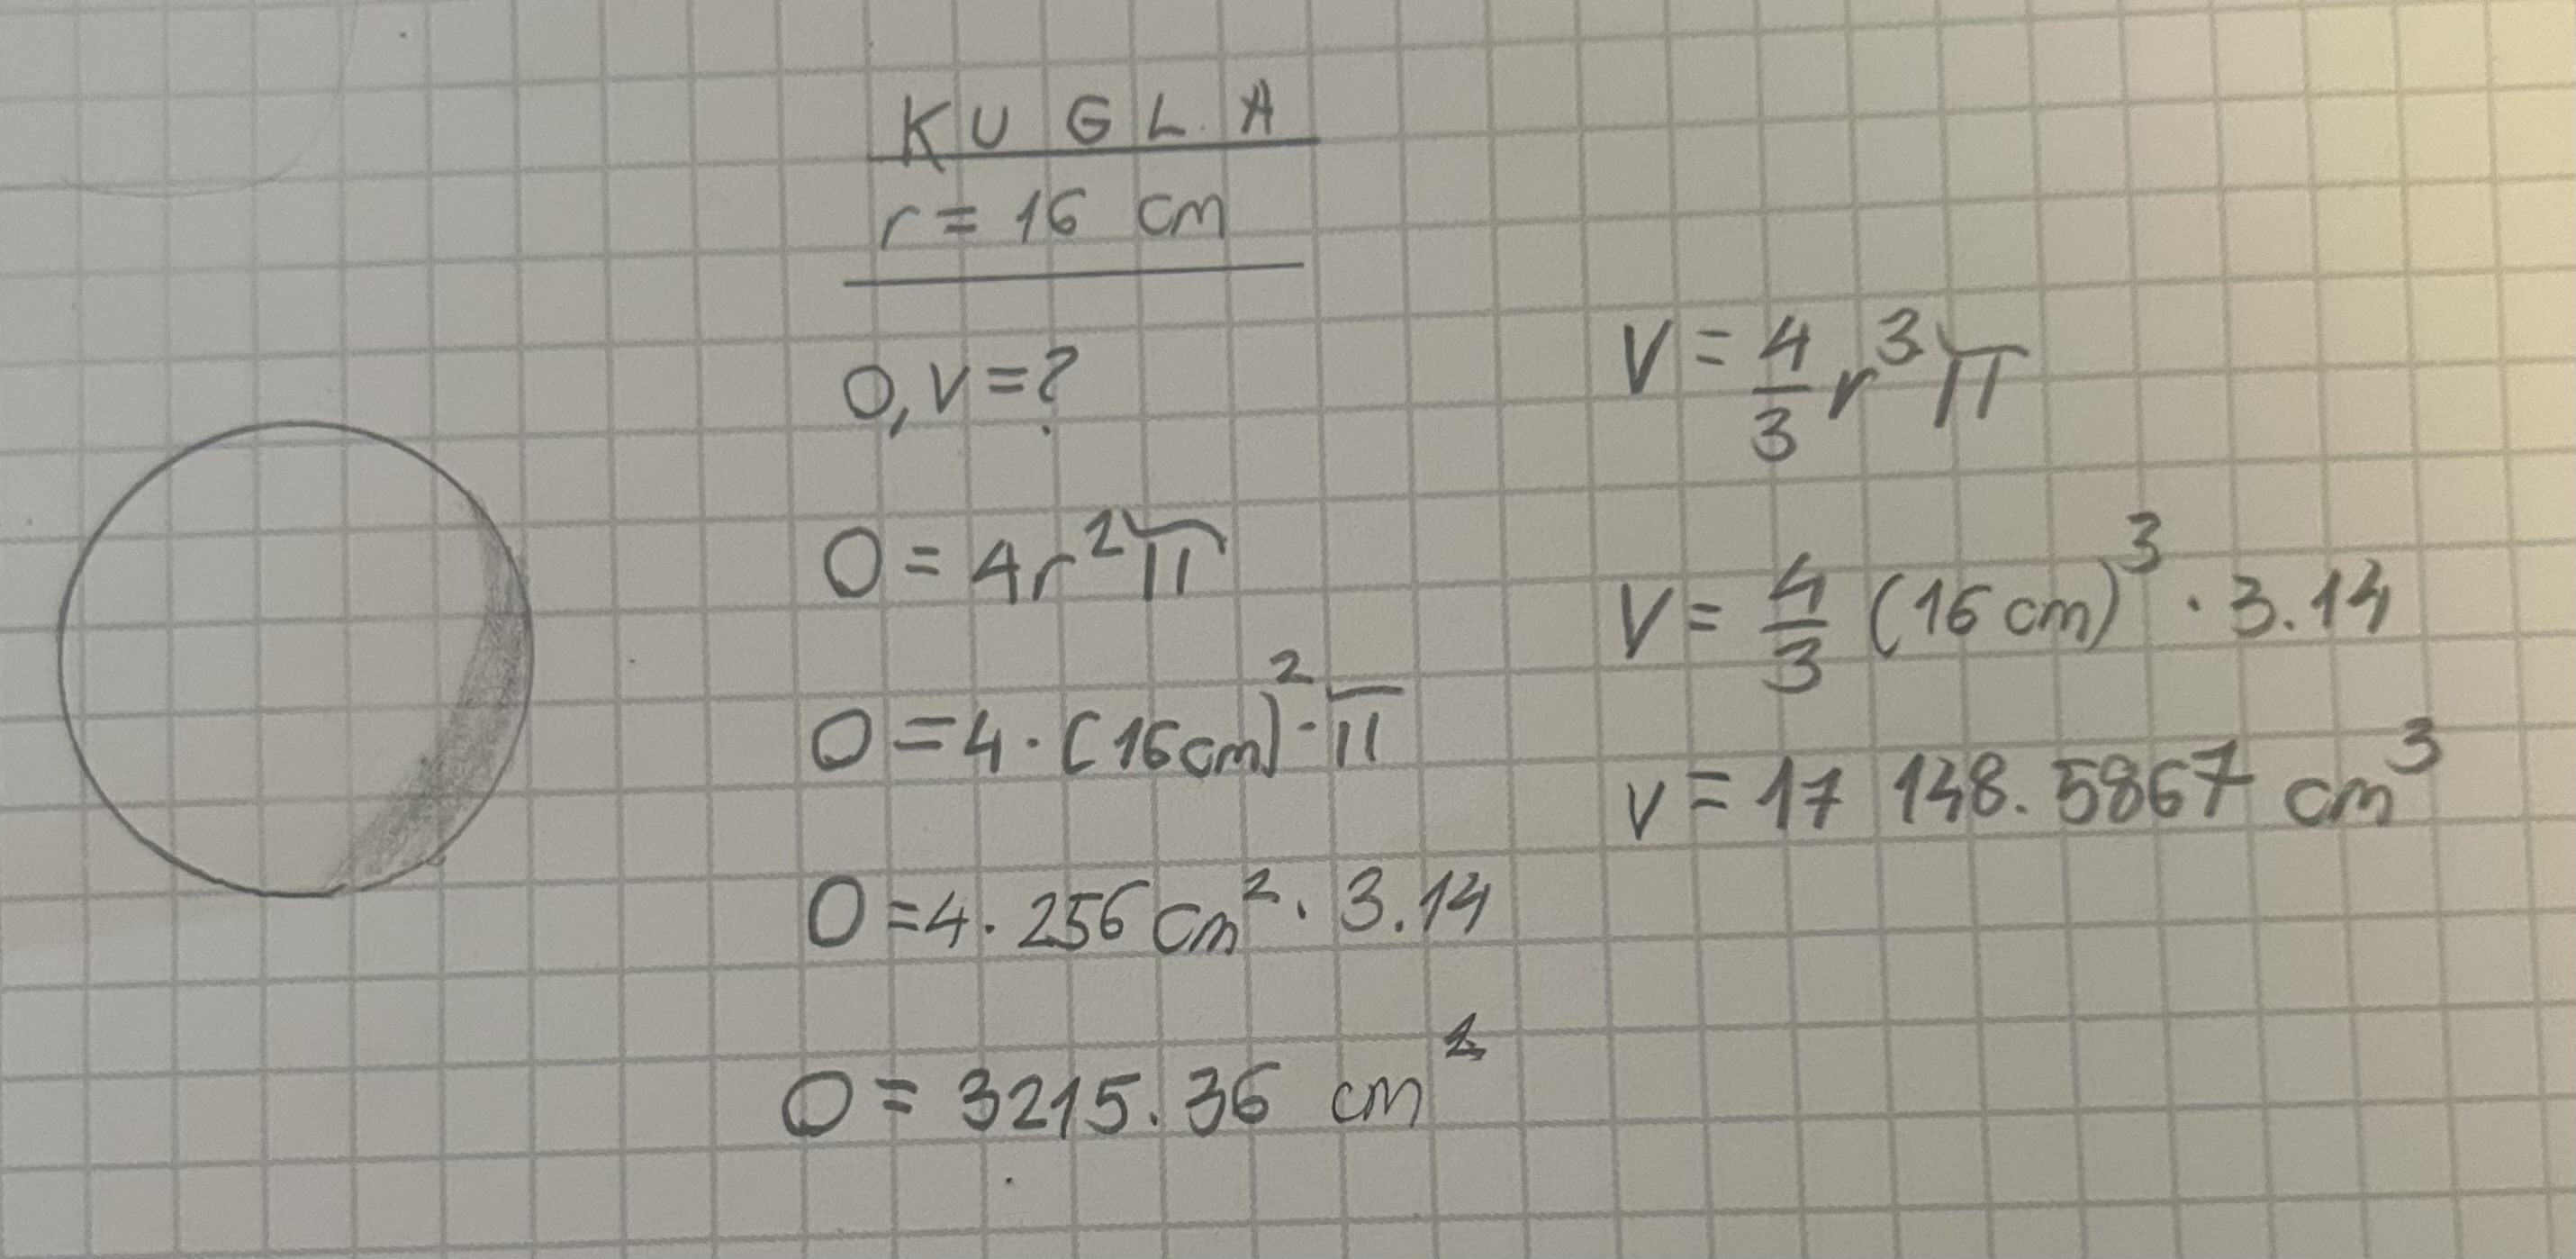 KUGLA
r = 16 cm
O, V = ?
O = 4r²π
O = 4 · (16cm)² · π
O = 4 · 256 cm² · 3.14
O = 3215.36 cm²
V = 4/3 r³π
V = 4/3 (16 cm)³ · 3.14
V = 17 148.5867 cm³